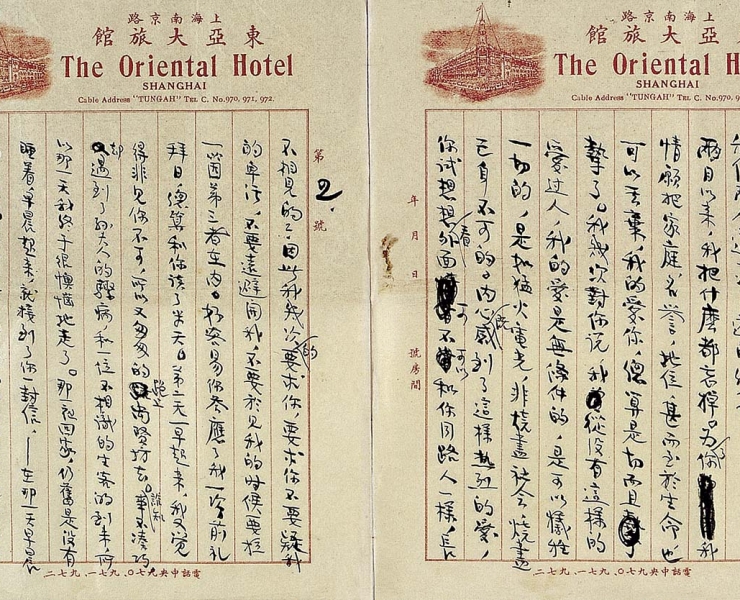 上海南京路
亞大旅館
The Oriental H
SHANGHAI
Cable Address "TUNGAH" TEL C. No.
兩月以来，我把什麼都忘掉。为你我
情願把家庭，名誉，地位，甚而至於生命也
可以丟棄，我的愛你，總算是切而且
摯了。我幾次對你说，我從没有這樣的
愛过人，我的愛是無條件的，是可以犧牲
一切的，是如猛火電光，非燒盡社会，燒盡
己身不可的。内心既感到了這樣熱烈的愛，
你試想想看外面可不可以和你同路人一樣，長
年 月 日
號房間
電話中央九七〇、九七一、九七二
上海南京路
東亞大旅館
The Oriental Hotel
SHANGHAI
Cable Address "TUNGAH" TEL C. No. 970, 971, 972.
第2號
不相見的？因此我幾次的要求你，要求你不要疑我
的卑污，不要遠避開我，不要於見我的时候要拉
一個第三者在内。好容易你答應了我一次，前礼
拜日，總算和你談了半天。第二天一早起来，我又覚
得非見你不可，所以又匆匆的跑上尚賢坊去。誰知事不湊巧
却遇到了孙夫人的驟病，和一位不相識的生客的到来，所
以那一天我終于很懊惱地走了。那一夜回家，仍舊是没有
睡着，早晨起来，就接到了你一封信，——在那一天早晨
電話中央九七〇、九七一、九七二